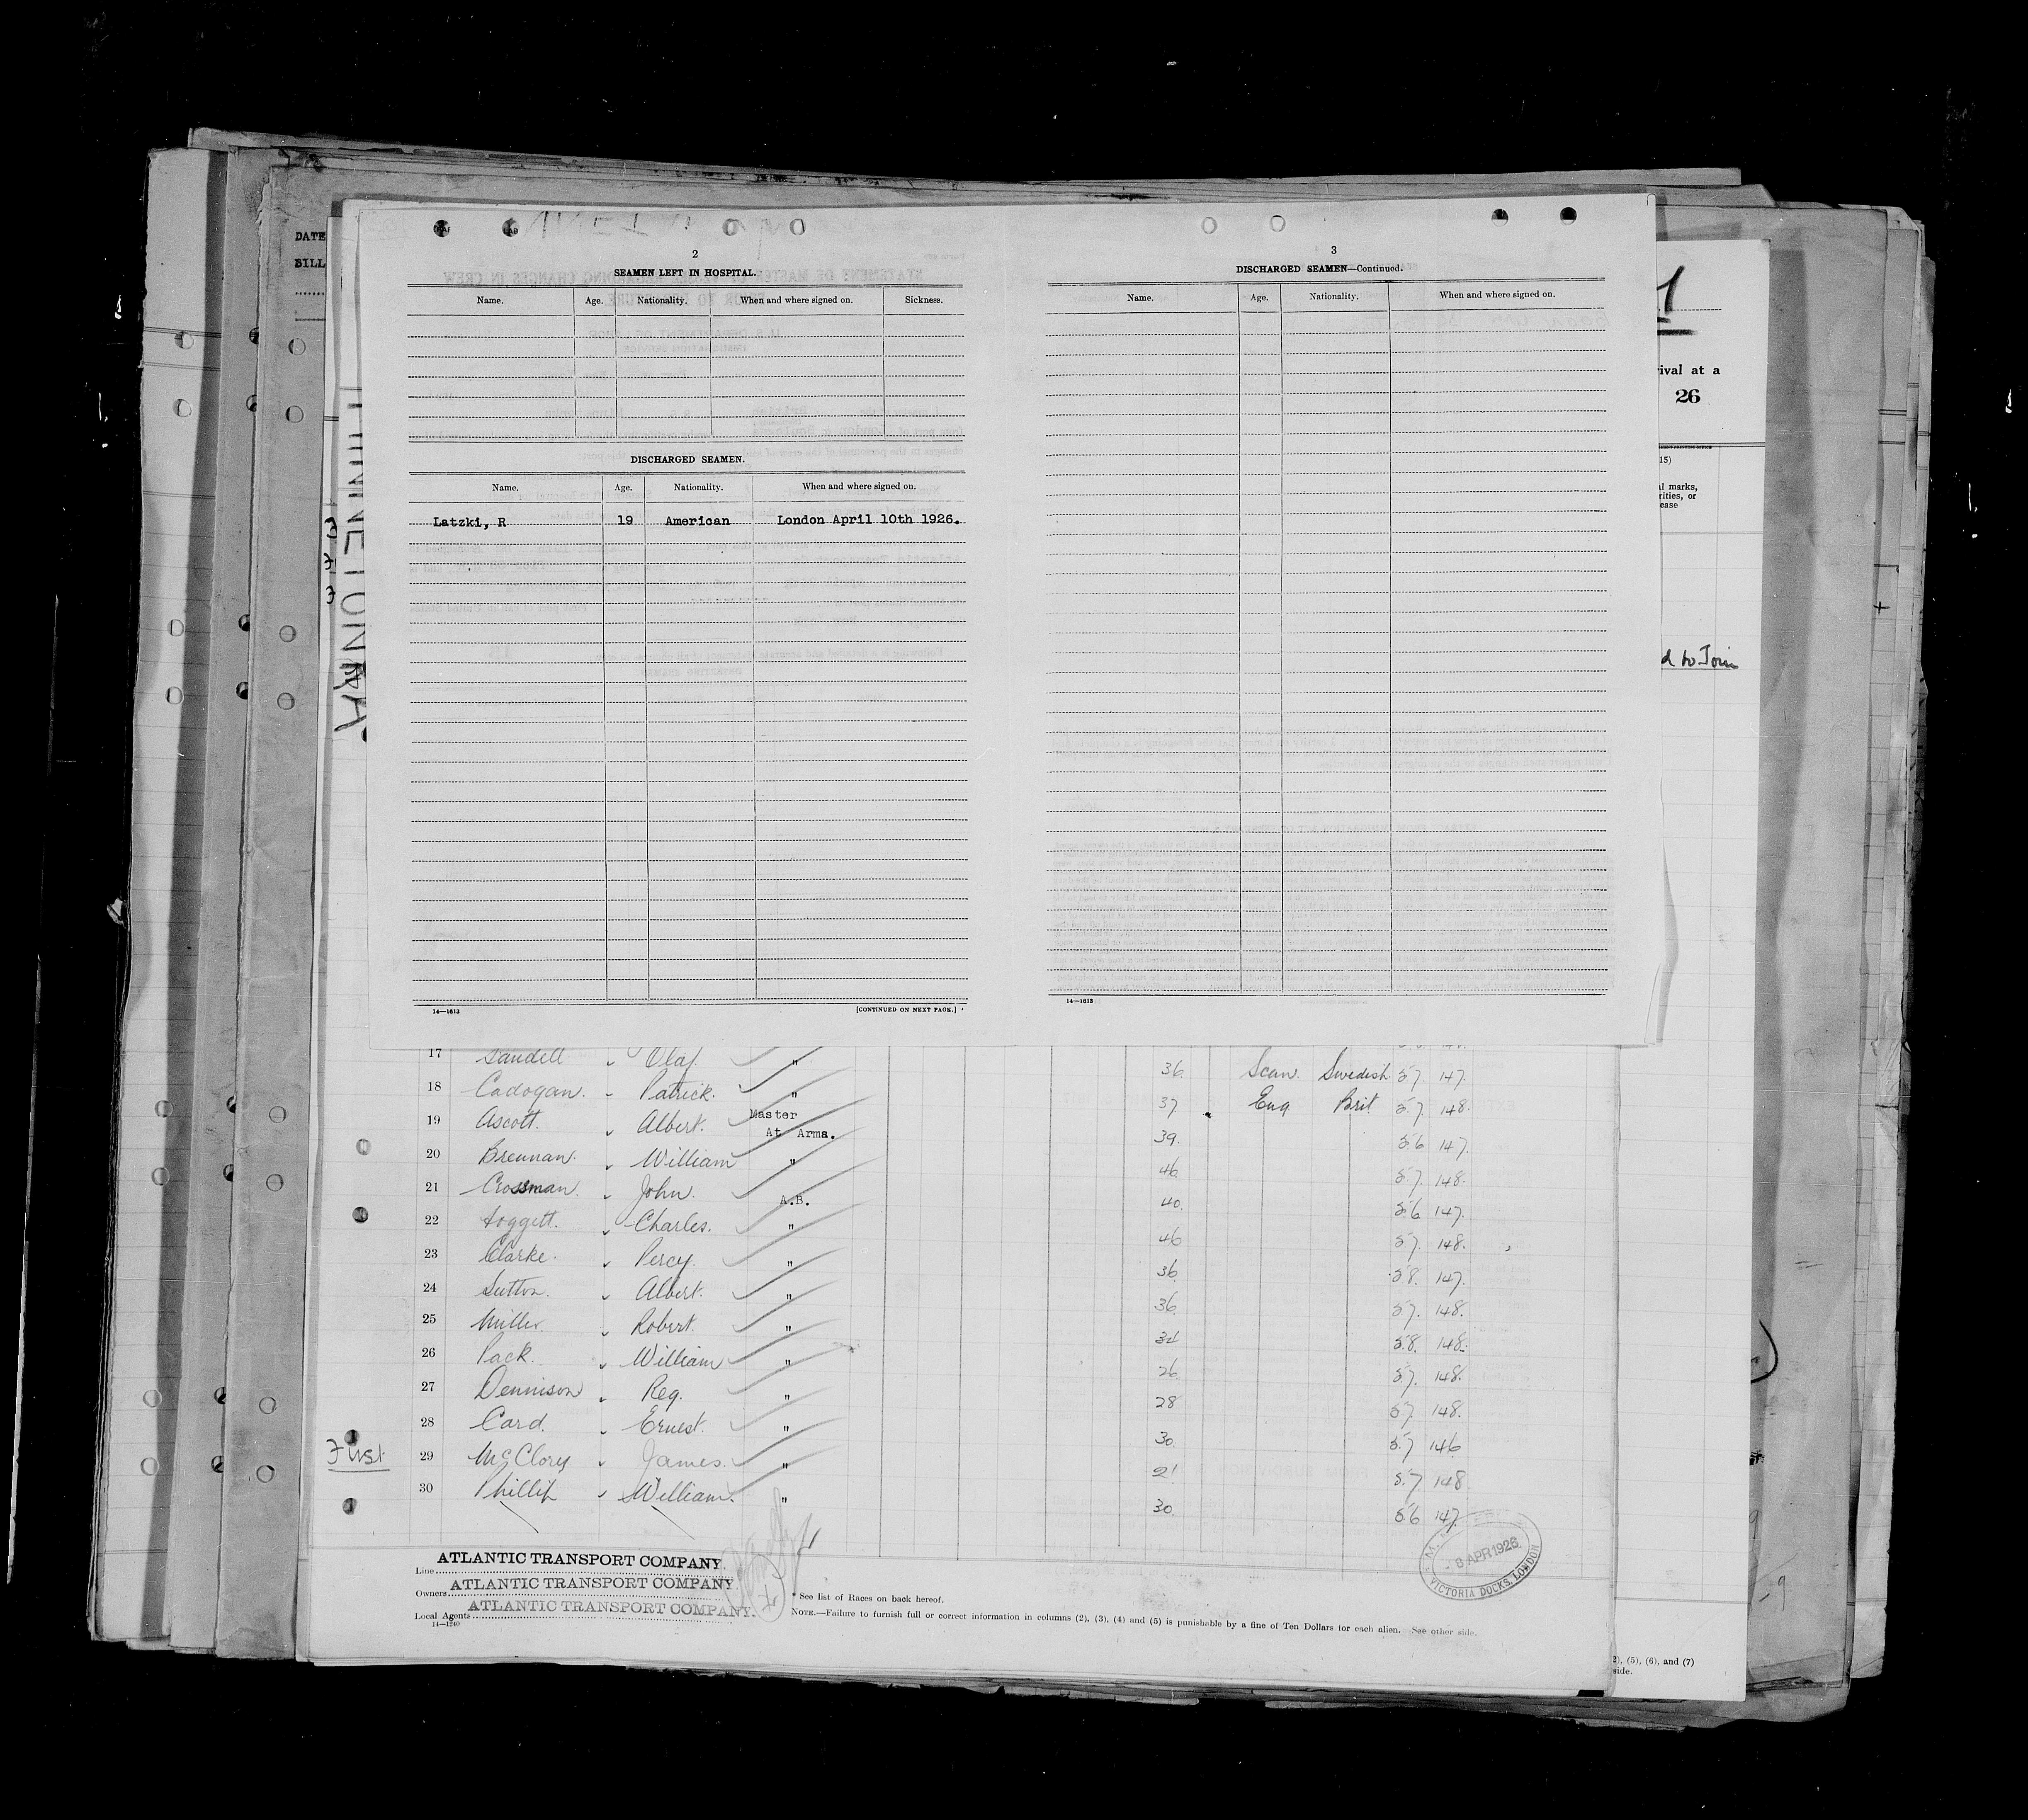 2
SEAMEN LEFT IN HOSPITAL.
Name. Age. Nationality. When and where signed on. Sickness.
DISCHARGED SEAMEN.
Name. Age. Nationality. When and where signed on.
Latzki, R 19 American London April 10th 1926.
14—1613 [CONTINUED ON NEXT PAGE.]
3
DISCHARGED SEAMEN—Continued.
Name. Age. Nationality. When and where signed on.
14—1613
DATE
BILL
1
rival at a
26
15)
al marks,
rities, or
ease
d to Join
17 Sandell Olaf. " 36 Scan. Swedish 57 147.
18 Cadogan. Patrick. " 37 Eng Brit 57 148.
19 Ascott. Albert. Master At Arms. 39. 56 147.
20 Brennan. William " 46 57. 148.
21 Crossman. John. A.B. 40. 56 147.
22 Foggett. Charles. " 46 57. 148.
23 Clarke. Percy. " 36 58. 147.
24 Sutton. Albert. " 36. 57. 148.
25 Miller. Robert. " 34 58. 148.
26 Pack. William " 26 57. 148.
27 Dennison Reg. " 28 57. 148.
28 Card. Ernest. " 30. 57 146
First 29 McClory James. " 21 57 148
30 Phillip William. " 30. 56 147.
Line ATLANTIC TRANSPORT COMPANY.
Owners ATLANTIC TRANSPORT COMPANY
Local Agents ATLANTIC TRANSPORT COMPANY.
14—1240
* See list of Races on back hereof.
NOTE.—Failure to furnish full or correct information in columns (2), (3), (4) and (5) is punishable by a fine of Ten Dollars for each alien. See other side.
- 8 APR 1926
VICTORIA DOCKS, LONDON
2), (5), (6), and (7)
side.